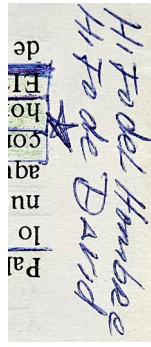 Hijo del Hombre
Hijo de David
Pal
lo
nu
aqu
con
hon
El
de